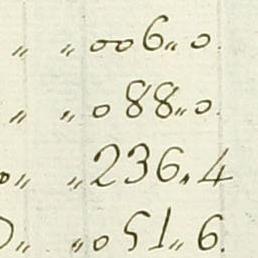 〃 〃 006〃 0.
〃 〃 088〃 0.
0〃 〃 236〃 4
〃 〃 051〃 6.